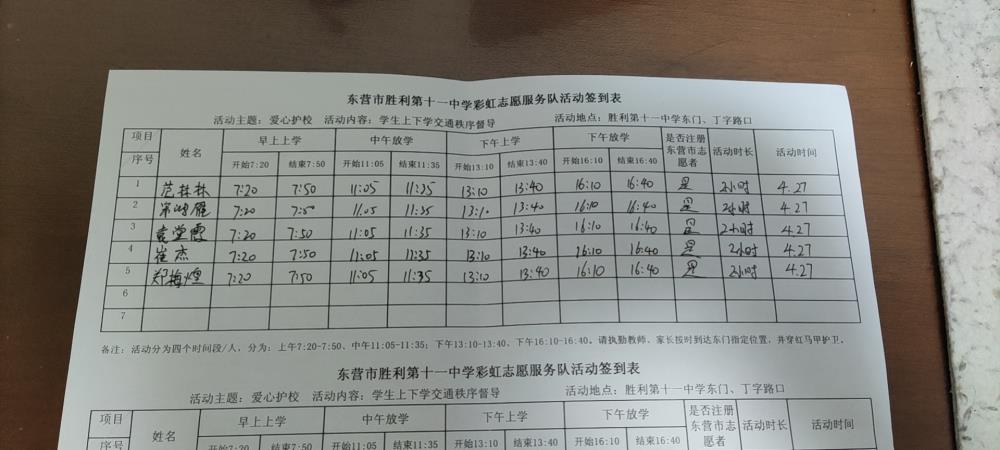 东营市胜利第十一中学彩虹志愿服务队活动签到表
活动主题：爱心护校 活动内容：学生上下学交通秩序督导 活动地点：胜利第十一中学东门、丁字路口
项目 姓名 早上上学 中午放学 下午上学 下午放学 是否注册东营市志愿者 活动时长 活动时间
序号 开始7:20 结束7:50 开始11:05 结束11:35 开始13:10 结束13:40 开始16:10 结束16:40
1 范林林 7:20 7:50 11:05 11:35 13:10 13:40 16:10 16:40 是 2小时 4.27
2 7:20 7:50 11:05 11:35 13:10 13:40 16:10 16:40 是 2小时 4.27
3 袁堂霞 7:20 7:50 11:05 11:35 13:10 13:40 16:10 16:40 是 2小时 4.27
4 崔杰 7:20 7:50 11:05 11:35 13:10 13:40 16:10 16:40 是 2小时 4.27
5 郑梅煌 7:20 7:50 11:05 11:35 13:10 13:40 16:10 16:40 是 2小时 4.27
6
7
备注：活动分为四个时间段/人，分为：上午7:20-7:50、中午11:05-11:35；下午13:10-13:40、下午16:10-16:40。请执勤教师、家长按时到达东门指定位置，并穿红马甲护卫。
东营市胜利第十一中学彩虹志愿服务队活动签到表
活动主题：爱心护校 活动内容：学生上下学交通秩序督导 活动地点：胜利第十一中学东门、丁字路口
项目 姓名 早上上学 中午放学 下午上学 下午放学 是否注册东营市志愿者 活动时长 活动时间
序号 开始7:20 结束7:50 开始11:05 结束11:35 开始13:10 结束13:40 开始16:10 结束16:40